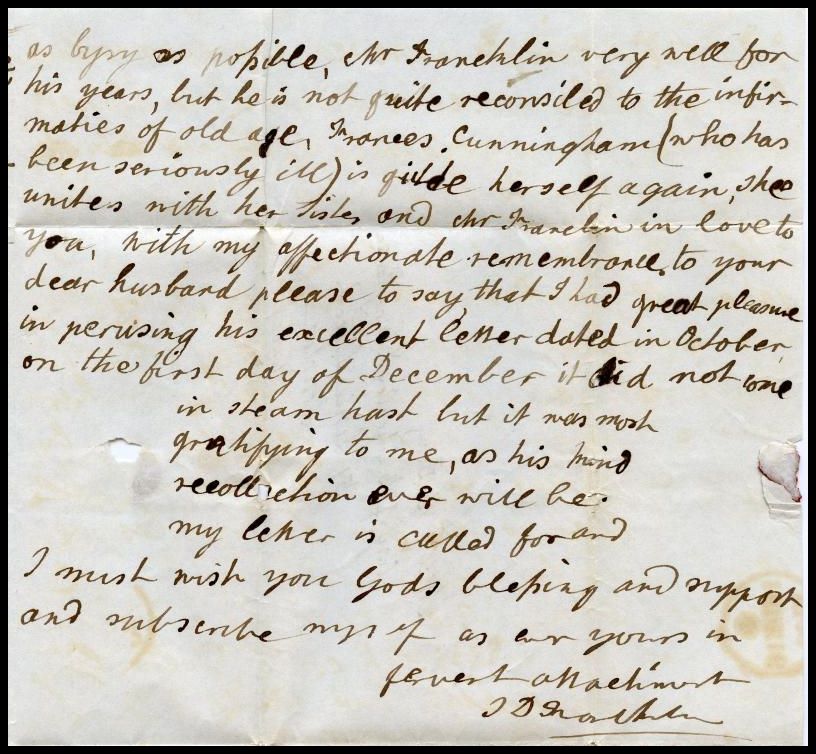 as bysy as possible, Mr Francklin very well for
his years, but he is not quite reconsiled to the infir-
maties of old age, Frances. Cunningham (who has
been seriously ill) is quide herself again, Shee
unites with her Sister and Mr Franclin in love to
you, With my affectionate remembrance, to your
dear husband please to say, that I had great pleasure
in perusing his excellent letter dated in October
on the first day of December it did not come
in steam hast but it was most
gratifying to me, as his kind
recollection ever will be.
my letter is called for and
I must wish you Gods blessing and support
and subscribe myself as ever yours in
fervert attachment
J D